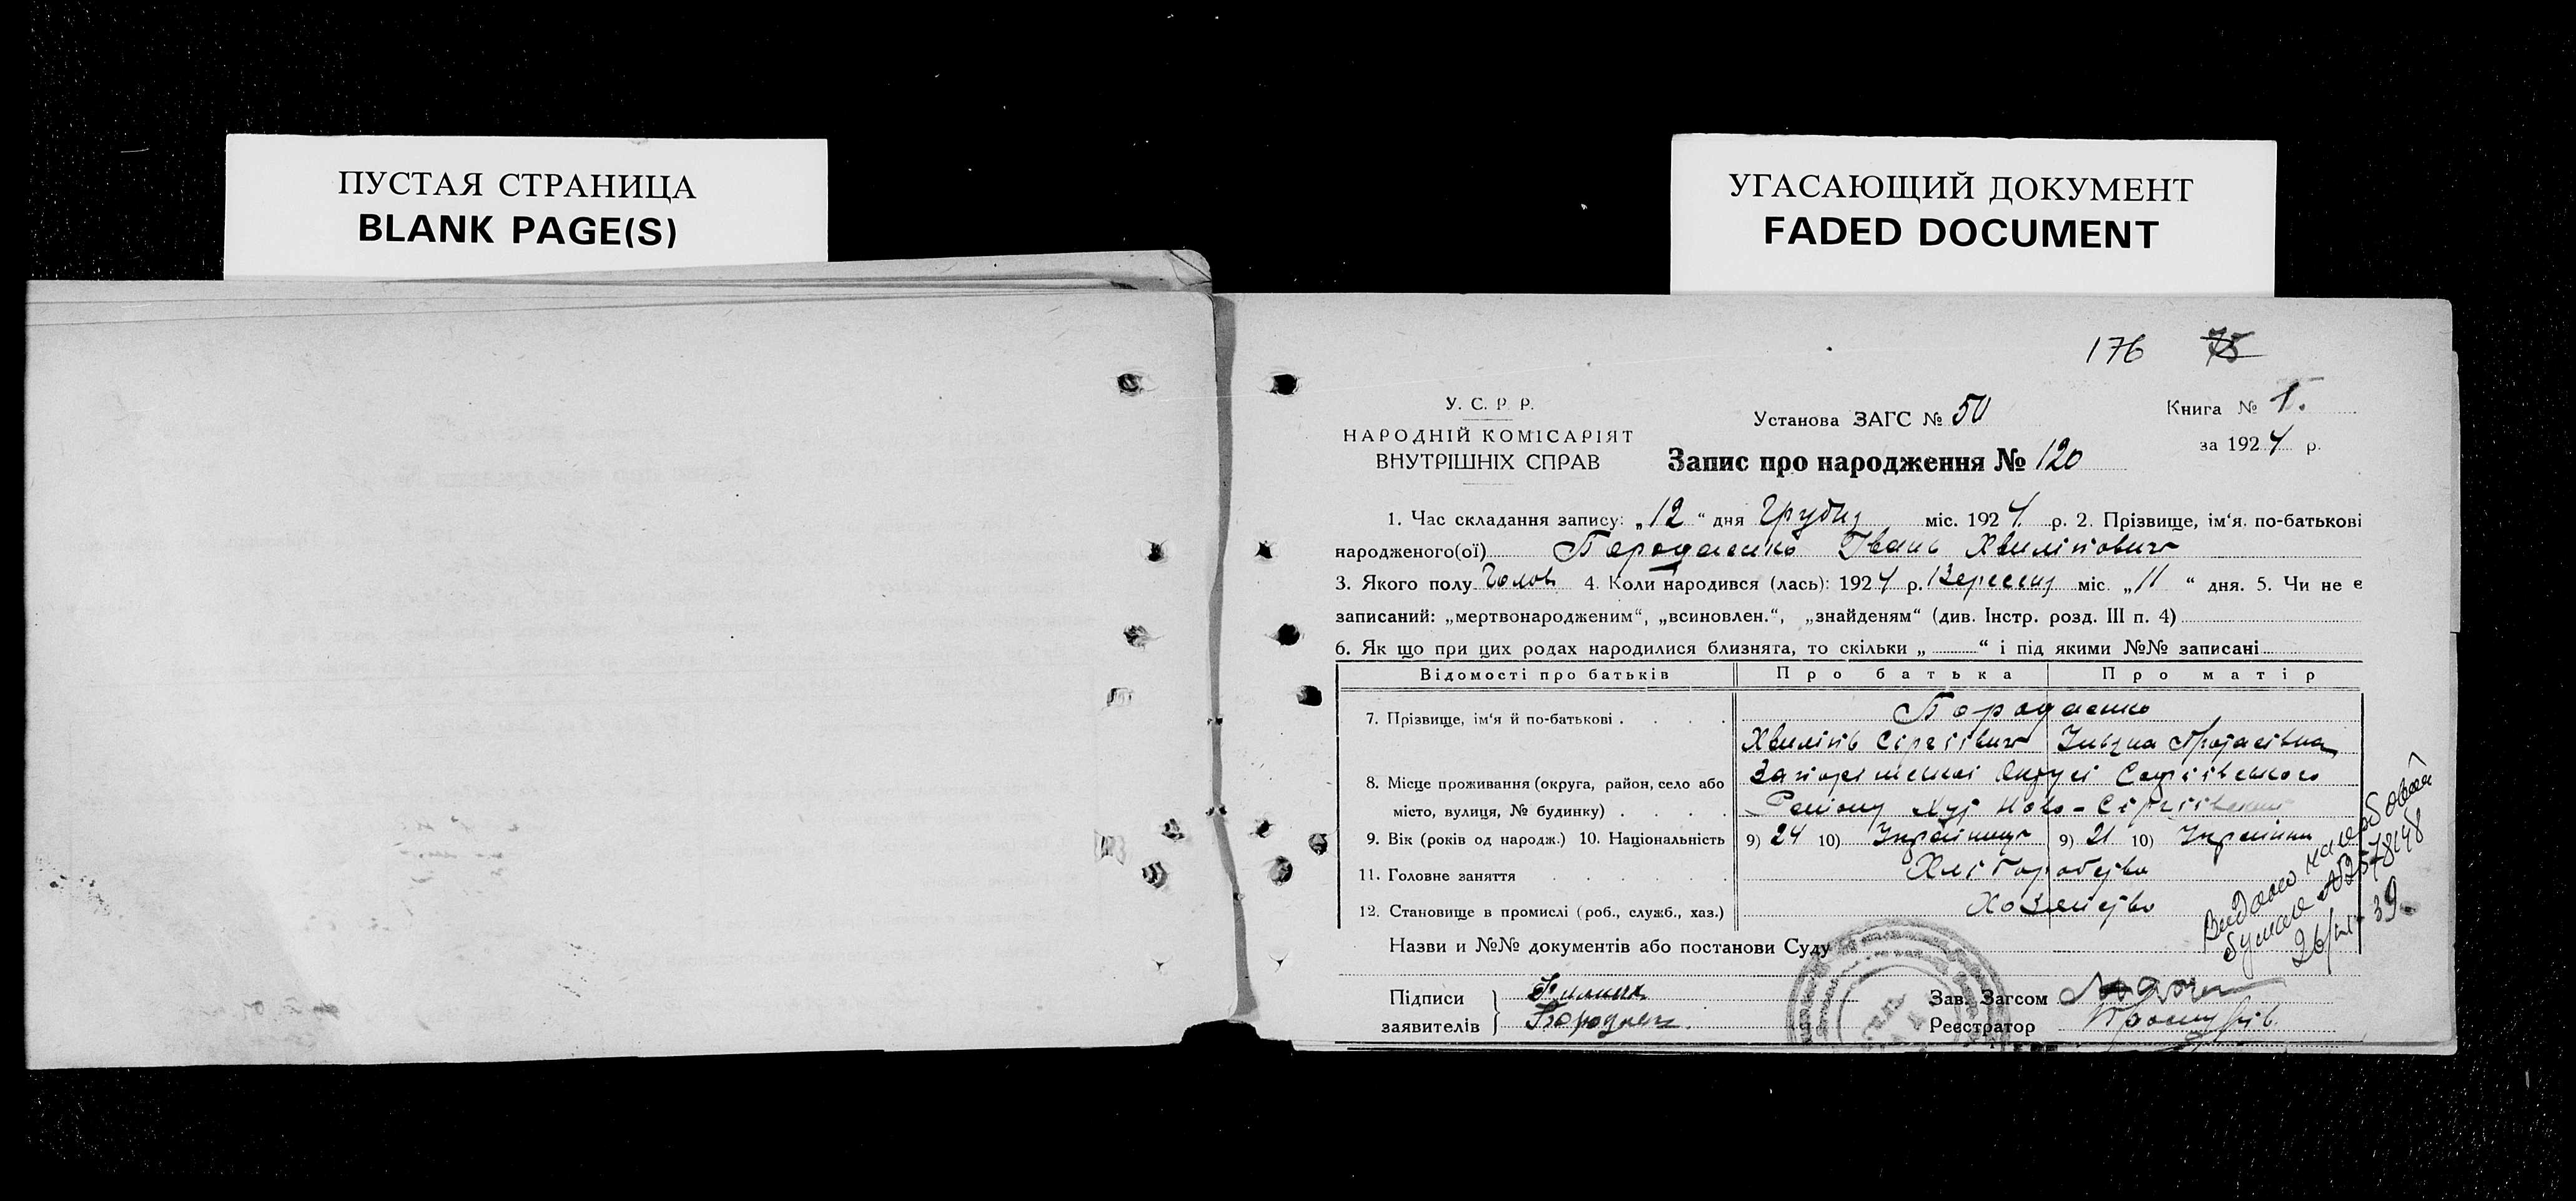 ПУСТАЯ СТРАНИЦА
BLANK PAGE(S)
УГАСАЮЩИЙ ДОКУМЕНТ
FADED DOCUMENT
176 75
У. С. Р Р.
НАРОДНІЙ КОМІСАРІЯТ
ВНУТРІШНІХ СПРАВ
Установа ЗАГС № 50
Запис про народження № 120
Книга № 1.
за 1924 р.
1. Час складання запису: „12“ дня Грудня міс. 1924 р. 2. Прізвище, ім‘я, по-батькові
народженого(ої) Бородаенко Іванъ Хвиліповичъ
3. Якого полу Чолов 4. Коли народився (лась): 1924 р. Вересня міс. „11“ дня. 5. Чи не є
записаний: „мертвонародженим“, „всиновлен.“, „знайденям“ (див. Інстр. розд. III п. 4)
6. Як що при цих родах народилися близнята, то скільки „ “ і під якими №№ записані
Відомості про батьків Про батька Про матір
7. Прізвище, ім‘я й по-батькові . . . . Бородаенко
Хвиліпъ Сергіївичъ
8. Місце проживання (округа, район, село або
місто, вулиця, № будинку) . . . . Району Хут Ново-Сергіївський
9. Вік (років од народж.) 10. Національність 9) 24 10) Українець 9) 21 10) Українка
11. Головне заняття . . . . . Хліборобство
12. Становище в промислі (роб., служб., хаз.)
Назви и №№ документів або постанови Суду
Підписи
заявителів
Зав. Загсом
Реєстратор
Видано на гербовой
бумаге АБ2578148
26/VI-39